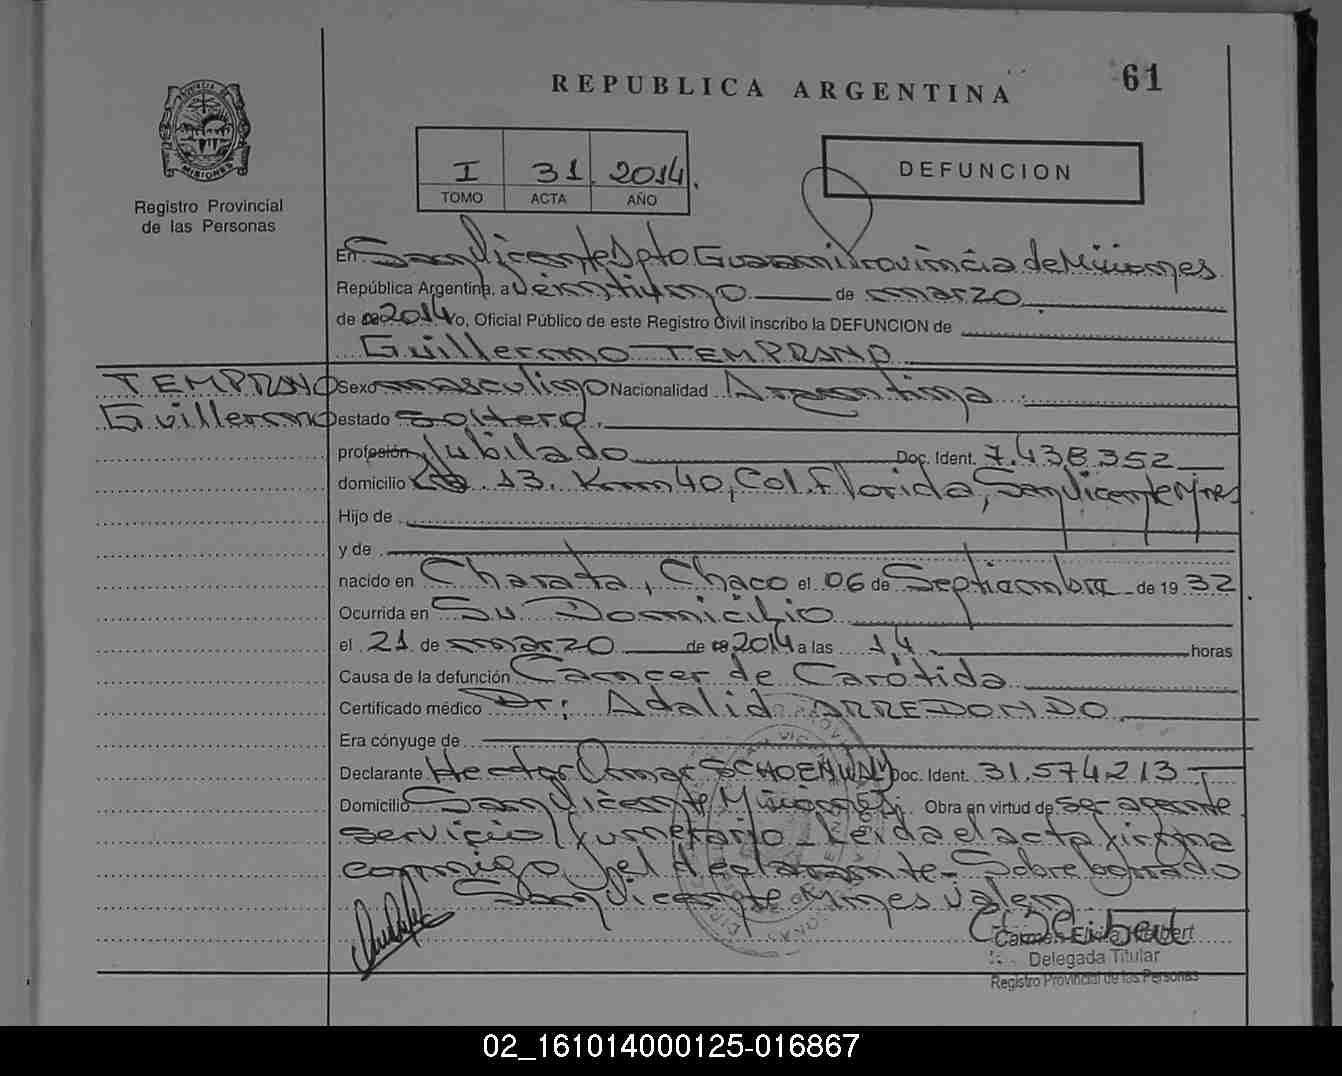 REPUBLICA ARGENTINA
61
I 31. 2014.
TOMO ACTA AÑO
DEFUNCION
MISIONES
Registro Provincial
de las Personas
En San Vicente Dpto Guarani Provincia de Misiones
República Argentina, a veintiuno de marzo
de 2014 yo, Oficial Público de este Registro Civil inscribo la DEFUNCION de
Guillermo TEMPRANO
TEMPRANO
Guillermo
Sexo masculino Nacionalidad Argentina
estado soltero.
profesión Jubilado Doc. Ident. 7.438.352
domicilio 13. Km 40, Col. Florida, San Vicente Mnes
Hijo de
y de
nacido en Charata, Chaco el 06 de Septiembre de 1932.
Ocurrida en Su Domicilio
el 21 de marzo de 2014 a las 14. horas
Causa de la defunción Cancer de Carótida
Certificado médico Dr: Adalid ARREDONDO
Era cónyuge de
Declarante Hector Omar Doc. Ident. 31.574.213
Domicilio San Vicente Misiones. Obra en virtud de ser agente
servicio funerario. Leida el acta firma
conmigo el declarante. Sobre borrado
San Vicente Mnes valen
Delegada Titular
Registro Provincial de las Personas
02_161014000125-016867